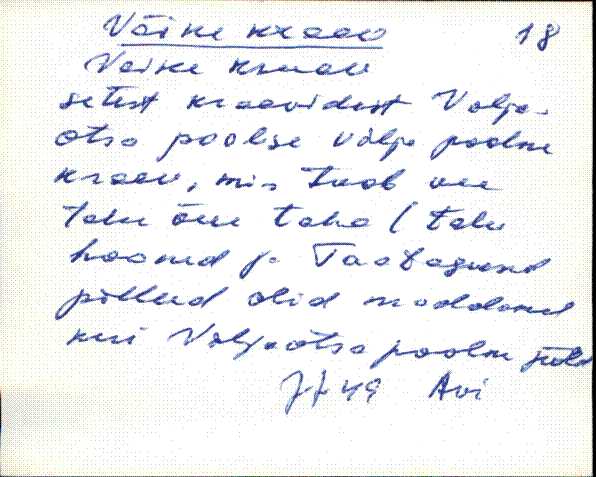 Väike kraav 18
Veike kraav
setest kraavidest Välja-
otsa poolse välja poolne
kraav, mis tuab vee
talu õue taha (talu
hooned ja Taatagused
põllud olid madalamad
kui Väljaotsa poolne põld
JJ 49 Avi